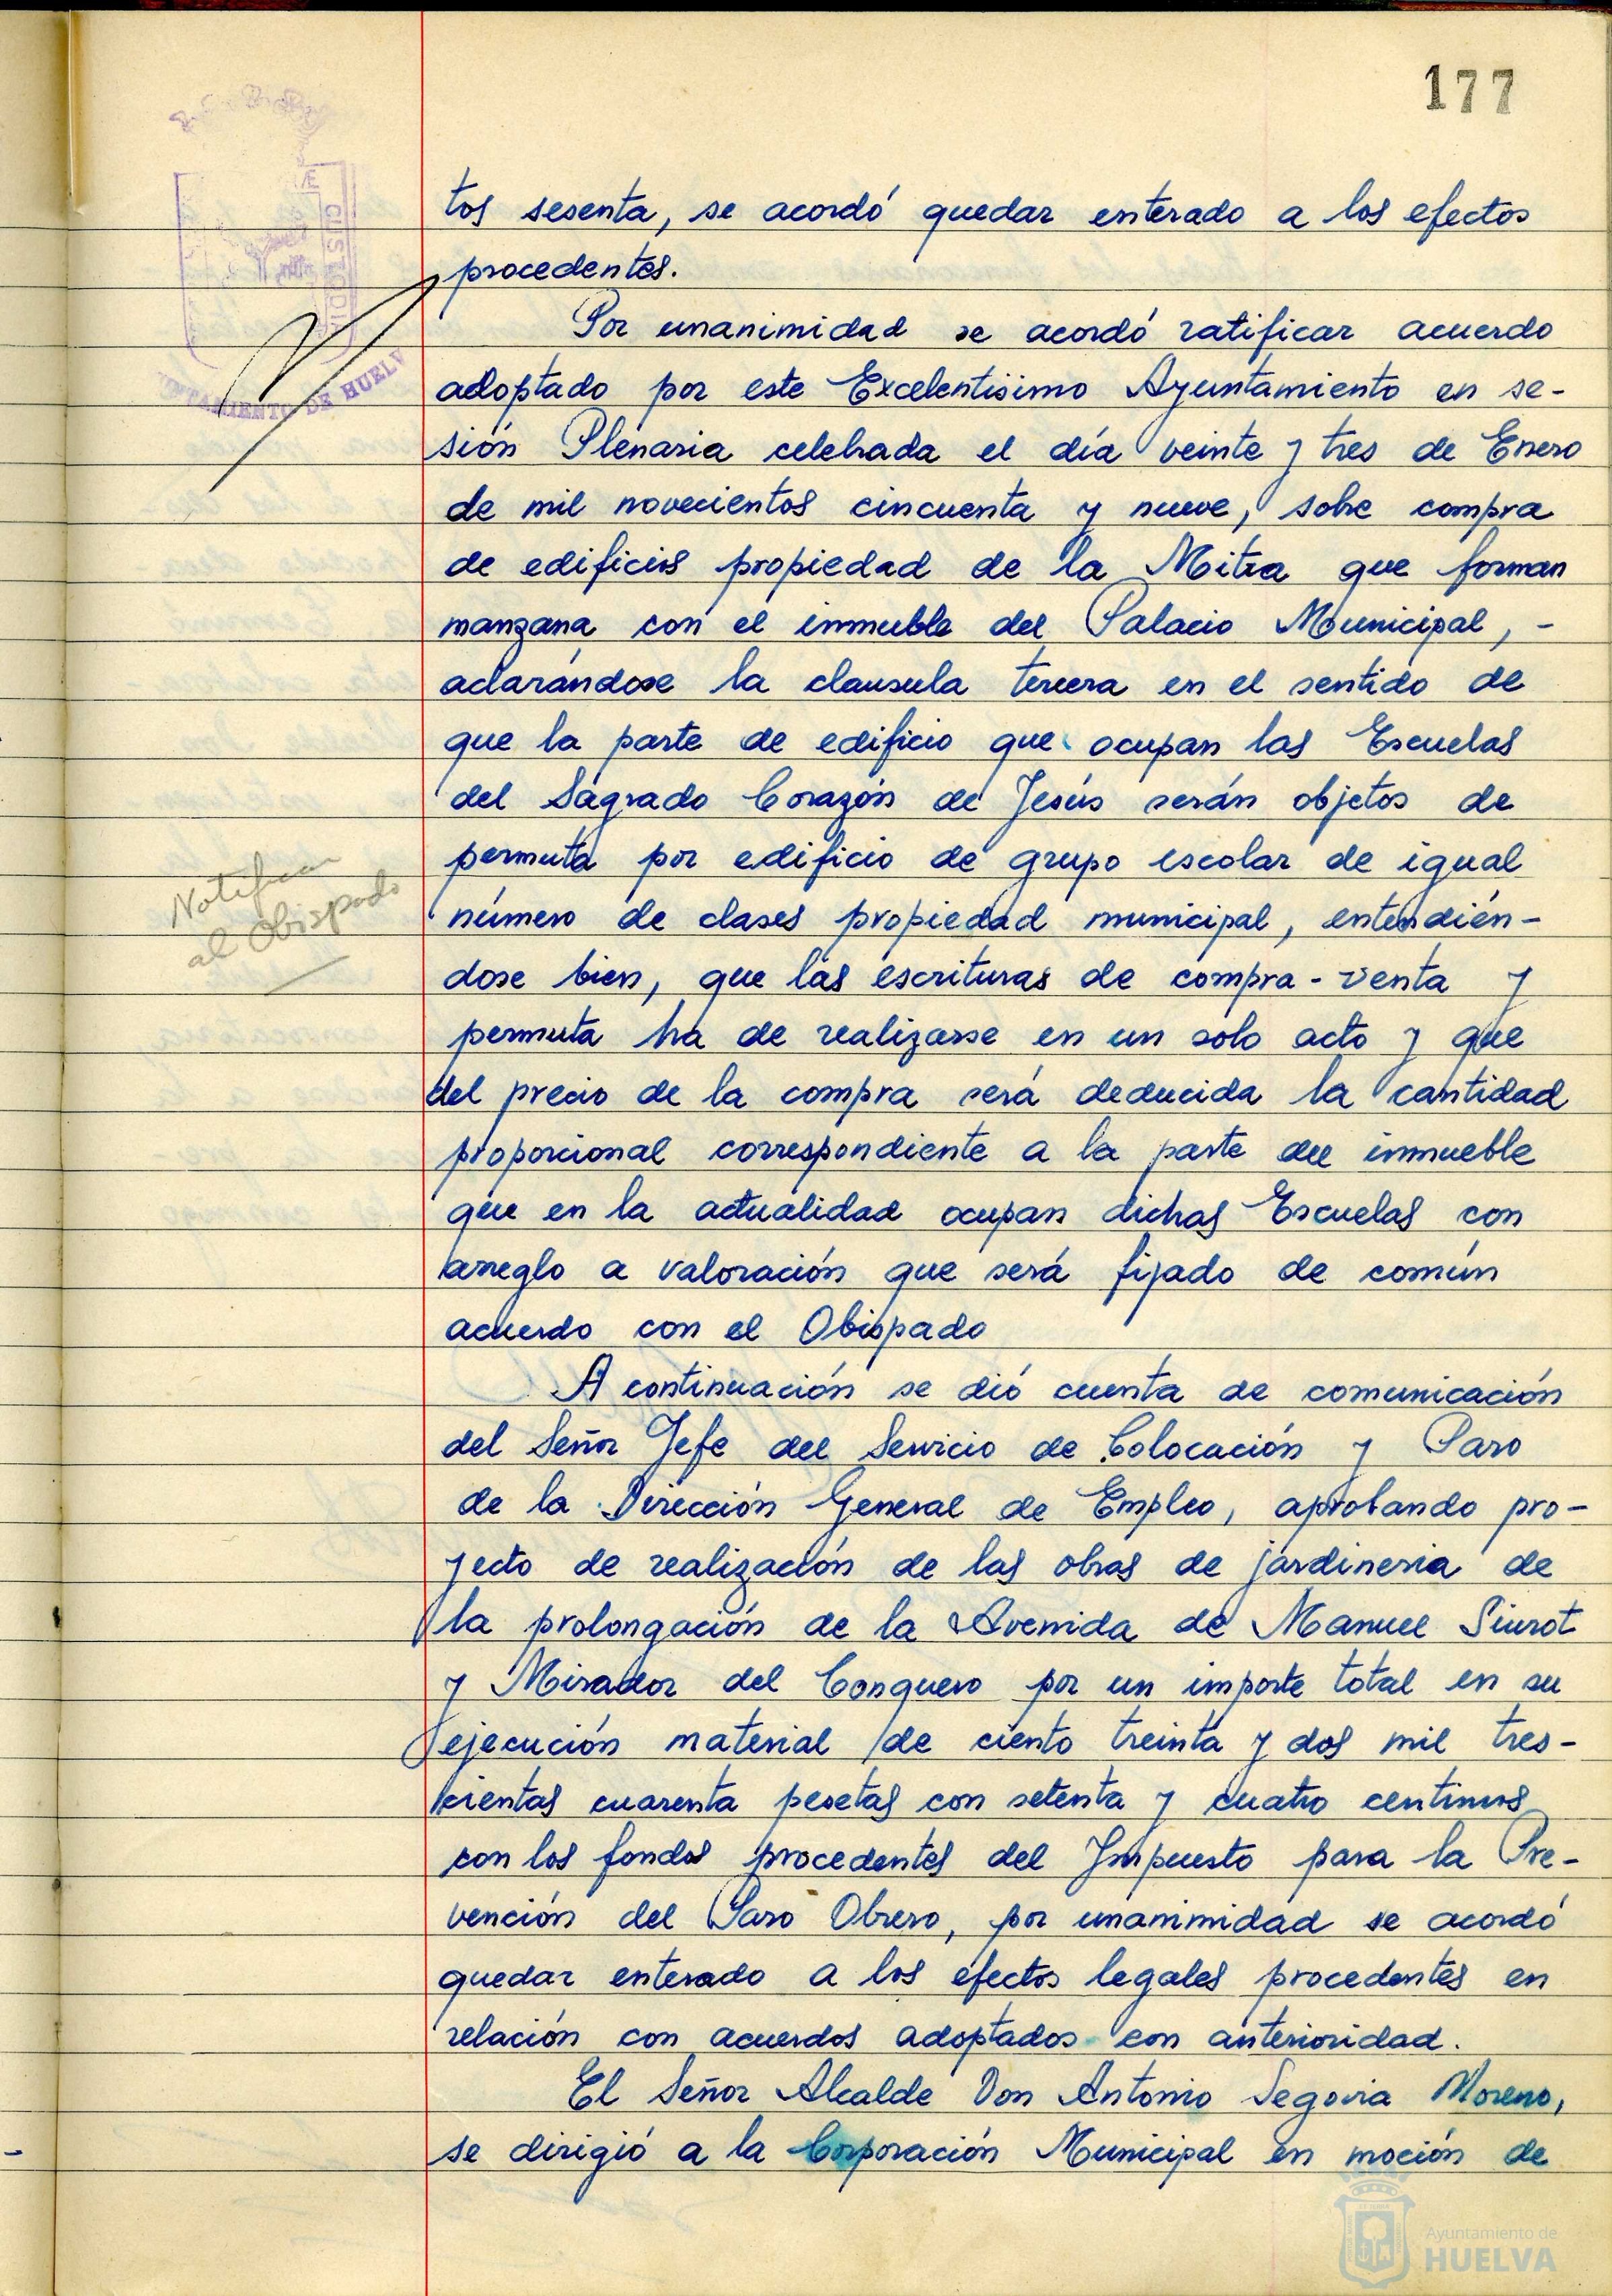 177
tos sesenta, se acordó quedar enterado a los efectos
procedentes.
Por unanimidad se acordó ratificar acuerdo
adoptado por este Excelentísimo Ayuntamiento en se-
sión Plenaria celebrada el día veinte y tres de Enero
de mil novecientos cincuenta y nueve, sobre compra
de edificios propiedad de la Mitra que forman
manzana con el inmueble del Palacio Municipal, -
aclarándose la clausula tercera en el sentido de
que la parte de edificio que ocupan las Escuelas
del Sagrado Corazón de Jesús serán objetos de
permuta por edificio de grupo escolar de igual
número de clases propiedad municipal, entendién-
dose bien, que las escrituras de compra-venta y
permuta ha de realizarse en un solo acto y que
del precio de la compra será deducida la cantidad
proporcional correspondiente a la parte del inmueble
que en la actualidad ocupan dichas Escuelas con
arreglo a valoración que será fijado de común
acuerdo con el Obispado
A continuación se dió cuenta de comunicación
del Señor Jefe del Servicio de Colocación y Paro
de la Dirección General de Empleo, aprobando pro-
yecto de realización de las obras de jardineria de
la prolongación de la Avenida de Manuel Siurot
y Mirador del Conquero por un importe total en su
ejecución material de ciento treinta y dos mil tres-
cientas cuarenta pesetas con setenta y cuatro centimos
con los fondos procedentes del Impuesto para la Pre-
vención del Paro Obrero, por unanimidad se acordó
quedar enterado a los efectos legales procedentes en
relación con acuerdos adoptados con anterioridad.
El Señor Alcalde Don Antonio Segovia Moreno,
se dirigió a la Corporación Municipal en moción de
Notificar
al Obispado
CUSTODIA
AYUNTAMIENTO DE HUELVA
Ayuntamiento de
HUELVA